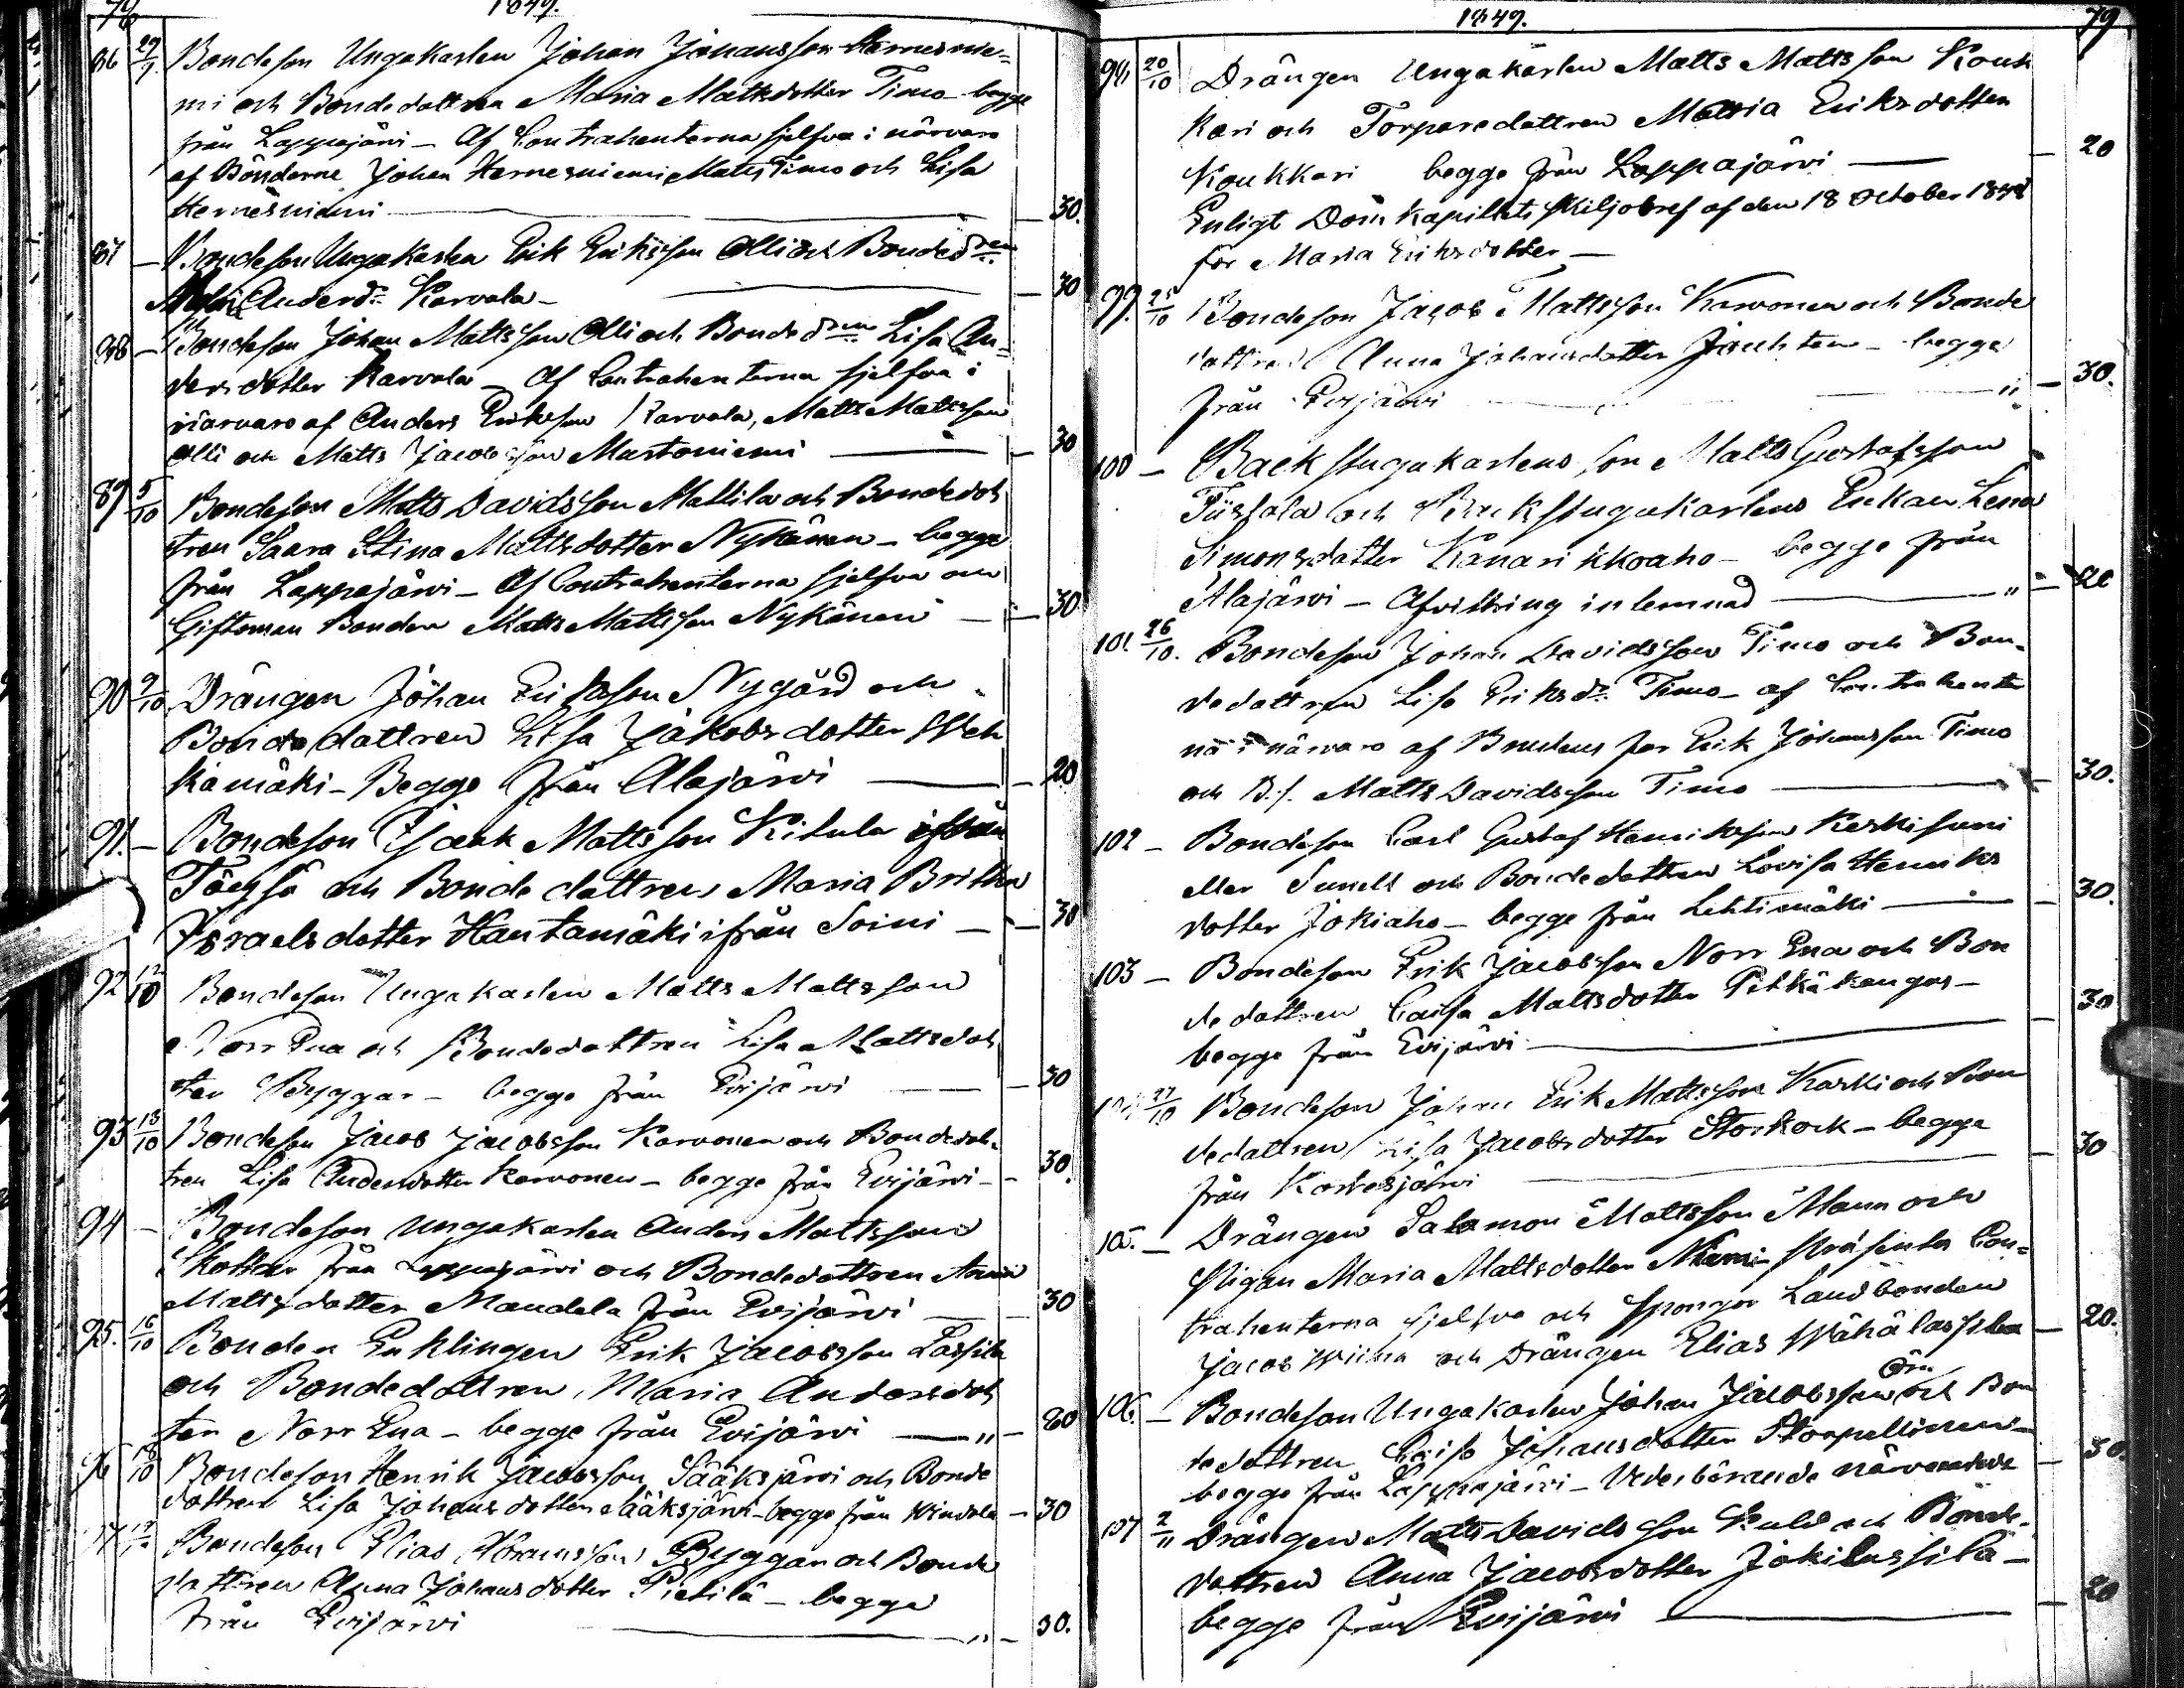 78 1849.
86 29/9 Bondeson Ungakarlen Johan Johansson Hernesnie=
mi och Bondedottren Maria Mattsdotter Timo - begge
från Lappajärvi - Af Contrahenterna sjelfva i närvaro
af Bönderne Johan Hernesniemi Matts Timo och Lisa
Hernesniemi — 30.
87 — Bondeson Ungakarlen Erik Eriksson Olli och Bonded:ren
Anders d:r Karvala — 30
88 — Bondeson Johan Mattsson Olli och Bonded:ren Lisa An=
dersdotter Karvala - Af Contrahenterna sjelfva i
närvaro af Anders Eriksson Karvala, Matts Mattsson
Olli och Matts Jacobsson Martoniemi — 30
89 5/10 Bondeson Matts Davidsson Mattila och Bondedot
tren Saara Stina Mattsdotter Nykänen - begge
från Lappajärvi - Af Contrahenterna sjelfva och
Giftoman Bonden Matts Mattsson Nykänen — 30
90 9/10 Drängen Johan Eriksson Nygård och
Bondedottren Lisa Jakobsdotter
kamäki - Begge från Alajärvi — 20
91. — Bondeson Isaak Mattsson Kitula ifrån
Töysä och Bondedottren Maria Britha
Israelsdotter Hautamäki ifrån Soini — 30
92 12/10 Bondeson Ungakarlen Matts Mattsson
Norr Ena och Bondedottren Lisa Mattsdot
ter Byggar - begge från Evijärvi — 30
93 13/10 Bondeson Jacob Jacobsson Karvonen och Bondedot=
tren Lisa Andersdotter Karvonen - begge från Evijärvi — 30.
94 — Bondeson Ungakarlen Anders Mattsson
från Lappajärvi och Bondedottren Anna
Mattsdotter Mandela från Evijärvi — 30
95. 16/10 Bonden Enklingen Erik Jacobsson Lassila
och Bondedottren Maria Andersdot
ter Norr Ena - begge från Evijärvi — " — 60
96 18/10 Bondeson Henrik Jacobsson Sääksjärvi och Bonde
dottren Lisa Johansdotter Sääksjärvi - begge från Windala — 30
97 Bondeson Elias Byggar och Bonde
dottren Anna Johansdotter Pietilä - begge
från Evijärvi — " — 30.
1849. 79
98 20/10 Drängen Ungakarlen Matts Mattsson Kouk
kari och Torparedottren Maria Eriksdotter
Koukkari begge från Lappajärvi — 20
Enligt Domkapitlets skiljobref af den 18 October
för Maria Eriksdotter —
99. 25/10 Bondeson Jacob Mattsson Karvonen och Bonde
dottren Anna Johansdotter — begge
från Evijärvi — " — 30.
100 — Backstugakarlens son Matts Gustafsson
och Backstugukarlens Enkan Lena
Simonsdotter Kanarikkoaho - begge från
Alajärvi - Afvittring inlemnad — " — 20
101. 26/10. Bondeson Johan Davidsson Timo och Bon-
dedottren Lisa Eriksd:r Timo - af Contrahenter
na i närvaro af Brudens far Erik Johansson Timo
och B.s. Matts Davidsson Timo — 30.
102 — Bondeson Carl Gustaf Henriksson Keskisuni
eller och Bondedottren Lovisa Henriks
dotter Jokiaho - begge från Lehtimäki — 30.
103 — Bondeson Erik Jacobsson Norr Ena och Bon
dedottren Caisa Mattsdotter Pitkäkangas —
begge från Evijärvi — 30
104 27/10 Bondeson Johan Erik Mattsson Karki och Bon
dedottren Lisa Jacobsdotter Storkock - begge
från Kortesjärvi — 30
105. — Drängen Salomon Mattsson Mann och
Pigan Maria Mattsdotter Niemi - Con=
trahenterna sjelfva och Landbonden
Jacob och Drängen Elias — 20.
106. — Bondeson Ungakarlen Johan Jacobsson och Bon
dedottren Caisa Johansdotter Storpellinen —
begge från Lappajärvi - Vederbörande närvarande — 30.
107 2/11 Drängen Matts Davidsson och Bonde-
dottren Anna Jacobsdotter Jokilassila —
begge från Evijärvi — 20